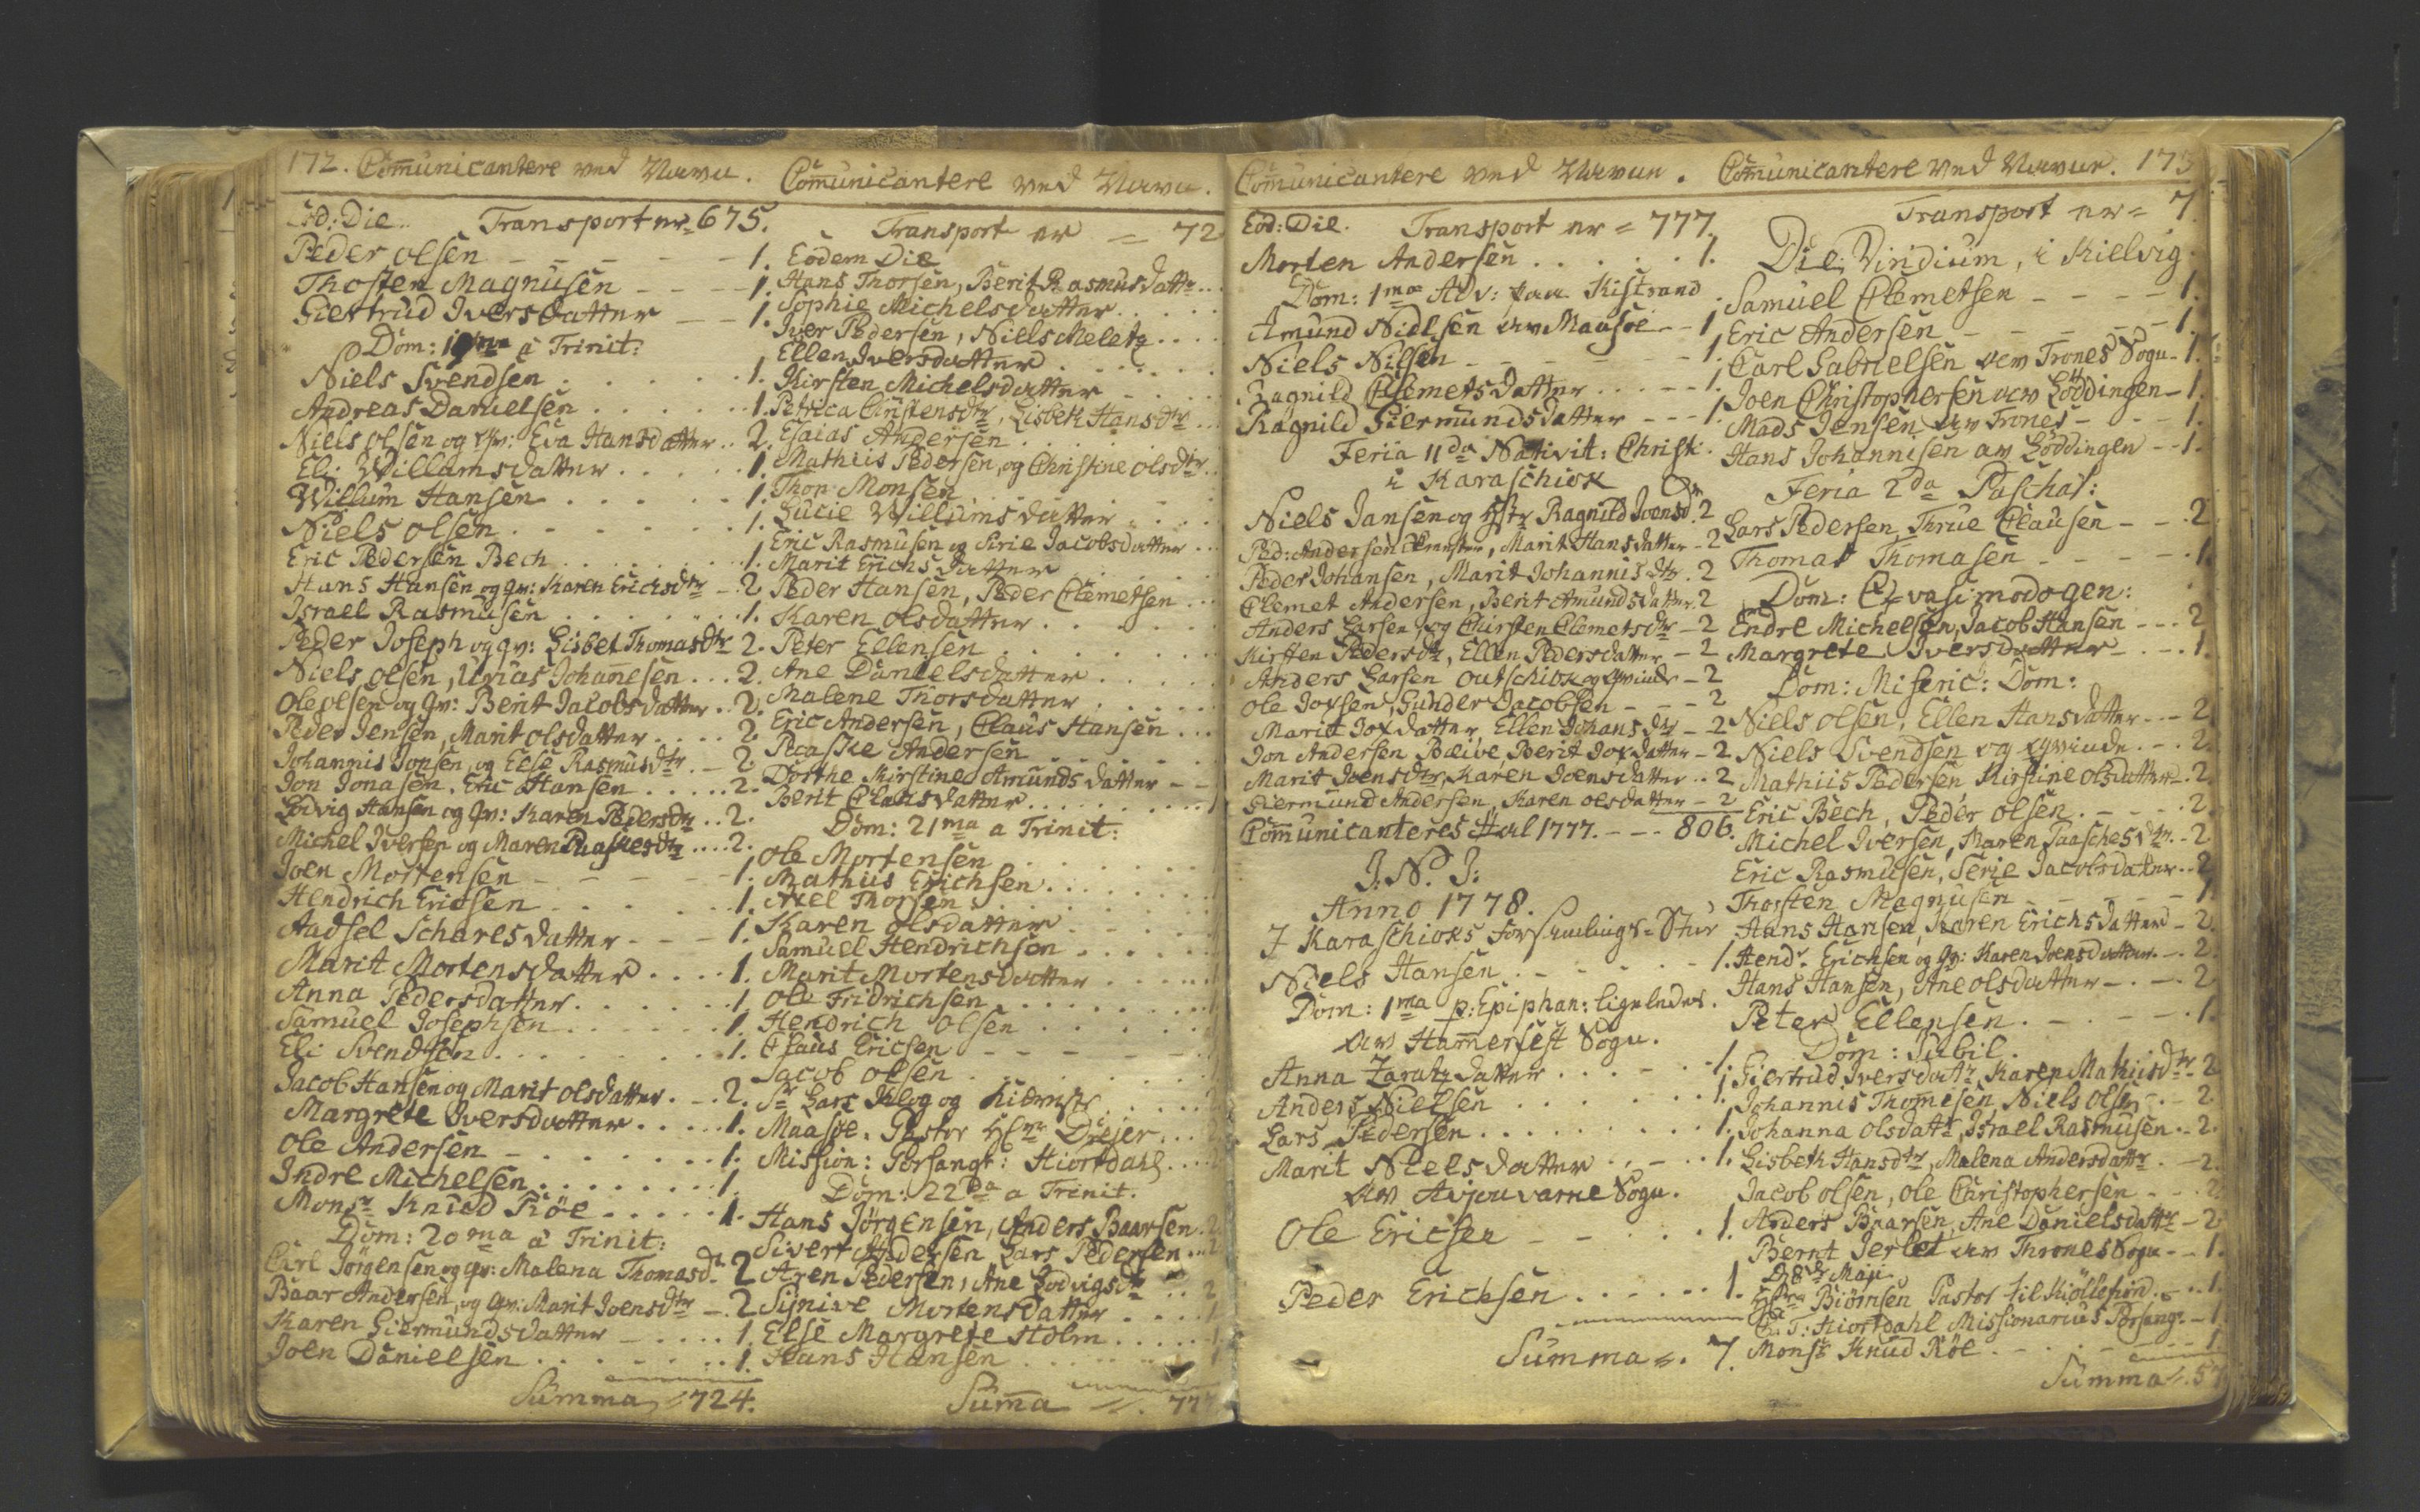 172. Com̄unicantere ved Navn.
Eod: Die. Transport er = 675.
Peder olsen - - - - - 1.
Thosten Magnusen - - - 1.
Giertrud Iversdatter - - 1.
Dom: 19na à Trinit:
Niels Svendsen . . . . . 1.
Andreas Danielsen . . . . . 1.
Niels olsen og qv: Eva Hansdatter . . 2.
Eli Willumsdatter . . . . 1.
Willum Hansen . . . . 1.
Niels olsen . . . . . 1.
Eric Pedersen Bech . . . . . 1.
Hans Hansen og qv: Karen Erichsdtr - 2
Israel Rasmusen . . . . . 1.
Peder Joseph og qv: Lisbet Thomasdtr 2.
Niels olsen, Urias Johan̄esen . . . 2.
Ole olsen og Qv: Berit Jacobsdatter . . 2.
Peder Jensen, Marit olsdatter . . . . 2.
Johannis Jonsen, og Else Rasmusdtr . - 2.
Jon Jonasen, Eric Hansen . . . . . 2.
Lodvig Hansen og Qv: Karen Pedersdtr . . 2.
Michel Iversen og Maren Paaskesdtr . . . . 2.
Joen Mortensen - - - - - 1.
Hendrich Ericsen . . . . . 1.
Aadsel Scharesdatter - - - 1.
Marit Mortensdatter . . . . 1.
Anna Pedersdatter . . . . . 1.
Samuel Josephsen . . . . . 1.
Eli Svendsen . . . . . 1.
Jacob Hansen og Marit olsdatter . - 2.
Margrete Iversdatter . . . . . 1.
Ole Andersen - . . . . . 1.
Indre Michelsen . . . . . 1.
Monsr Knud Röe . . . . . 1.
Dom: 20ma à Trinit:
Carl Jörgensen og qv: Malena Thomasdr 2
Baar Andersen, og qv: Marit Joensdtr - 2
Karen Giermundsdatter - . . . . 1.
Joen Danielsen . . . . . 1.
Summa = 724.
Com̄unicantere ved Navn.
Transport er = 72
Eodem Die
Hans Thorsen, Berit Rasmusdattr . .
Sophie Michelsdatter . . . . .
Iver Pedersen, Niels Meletz . . . .
Ellen Iversdatter . . . . .
Kirsten Michelsdatter . . . .
Petrica Christensdtr, Lisbeth Hansdtr . .
Esaias Andersen . . . . .
Mathiis Pedersen, og Christine olsdtr . .
Thor Monsen . . . . .
Lucie Willumsdatter . . . .
Eric Rasmusen og Sirie Jacobsdatter . . .
Marit Erichsdatter . . . .
Peder Hansen, Peder Clemetsen . . .
Karen olsdatter . . . . .
Peter Ellensen . . . . .
Ane Danielsdatter . . . . .
Malene Thorsdatter . . . . .
Eric Andersen, Claus Hansen . . .
Paaske Andersen . . . . .
Dorthe Kirstine Amundsdatter - -
Berit Clausdatter . . . . . 1
Dom: 21ma a Trinit:
Ole Mortensen . . . . .
Mathiis Erichsen . . . . .
Axel Thorsen . . . . .
Karen olsdatter . . . . .
Samuel Hendrichsen . . . .
Marit Mortensdatter . . . . .
Ole Fridrichsen . . . . . 1
Hendrich olsen . . . . .
Claus Ericsen - - - - -
Jacob olsen . . . . .
Sr Lars Klog og . . . . 2
Maasöe. Pastor Hr Drejer . . . 2
Mission: Porsangr: Hiortdahl . . . . 2
Dom: 22da a Trinit.
Hans Jörgensen, Anders Baarsen . 2
Sivert Andersen Lars Pedersen . . 2
Aren Pedersen, Ane Lodvigsdtr . . 2
Sijnive Mortensdatter . . . . 1
Else Margrete Holm . . . . . 1
Hans Hansen . . . . . 1
Sum̄a =. 777
Com̄unicantere ved Navn.
Eod: Die. Transport er = 777.
Morten Andersen . . . . . 1.
Dom: 1mæ Adv: paa Kistrand
Amund Nielsen av Maasöe - - 1
Niels Nilsen - - - - - 1.
Ragnild Clemetsdatter . . . - - 1.
Ragnild Giermundsdatter - - - 1
Feria 11da Nativit: Christi.
i Karaschiok
Niels Jansen og Hstr Ragnild Joensdr. 2
Ped: Andersen, Marit Hansdatter - 2
Peder Johansen, Marit Johannisdtr. 2
Clemet Andersen, Berit Amundsdatter. 2
Anders Larsen, og Chirsten Clemetsdtr - 2
Kirsten Pedersdtr, Ellen Pedersdatter - 2
Anders Larsen outschiok og qvinde - 2
Ole Joxsen, Gunder Jacobsen - - - 2
Marit Joxdatter, Ellen Johansdtr - 2
Jon Andersen Bæive, Berit Joxdatter - 2
Marit Joensdtr, Karen Joensdatter . . 2
Giermund Andersen, Karen olsdatter - 2
Com̄unicanteres tal 1777. - - - 806.
J: N: J:
Anno 1778.
I Karaschioks Forsamlings-Stue
Niels Hansen . - - - - 1.
Dom: 1ma p: Epiphan: ligeledes.
av Ham̄erfest Sogn.
Anna Zaratzdatter . . . - . 1.
Anders Nielsen . . . . . 1.
Lars Pedersen . . . . . 1.
Marit Nielsdatter . . - . . 1.
av Avjouvarne Sogn.
Ole Ericsen - - . . 1.
Peder Erichsen . . . . . . 1.
Summa =. 7.
Com̄unicantere ved Navn. 173
Transport er = 7.
Die Viridium, i Kielvig.
Samuel Clemetsen - - - - 1.
Eric Andersen - - - - - 1.
Carl Gabrielsen av Trones Sogn - 1.
Joen Christophersen av Löddingen - 1.
Mads Jensen av Trones - - - 1.
Hans Johannisen av Löddingen - - 1.
Feria 2da Paschat:
Lars Pedersen, Thrue Clausen - - . 2
Thomas Thomasen - - - . 1.
Dom: Qvasimodogen:
Endre Michelsen, Jacob Hansen - - - 2
Margrete Iversdatter - . - 1.
Dom: Miseric: Dom:
Niels olsen, Ellen Hansdatter - - - 2
Niels Svendsen og qvinde . - . 2.
Mathiis Pedersen, Kirstine olsdatter - 2
Eric Bech, Peder olsen . - - - . 2
Michel Iversen, Maren Paaschesdtr. - 2
Eric Rasmusen, Serie Jacobsdatter . . 2
Thosten Magnusen - - - - - 1
Hans Hansen, Karen Erichsdatter - 2.
Hendr. Erichsen og Qv: Karen Joensdatter. - . 2.
Hans Hansen, Ane olsdatter - . - 2
Peter Ellensen . - . - - 1.
Dom: Jubil.
Giertrud Iversdatr, Karen Mathisdtr - 2
Johannis Thomesen, Niels olsen . - 2.
Johanna olsdatr, Israel Rasmusen . - 2.
Lisbeth Hansdtr, Malena Andersdattr . - 2.
Jacob olsen, Ole Christophersen - - . 2
Anders Baarsen, Ane Danielsdattr - 2
Bernt Jerlet av Throne Sogn - - 1.
D. 8de Maji
Biörnsen Pastor til Kiöllefiord . - . . 1.
T: Hiortdahl Missionarius Porsangr. - 1
Monsr Knud Röe . - . - - - 1.
Summa =. 57